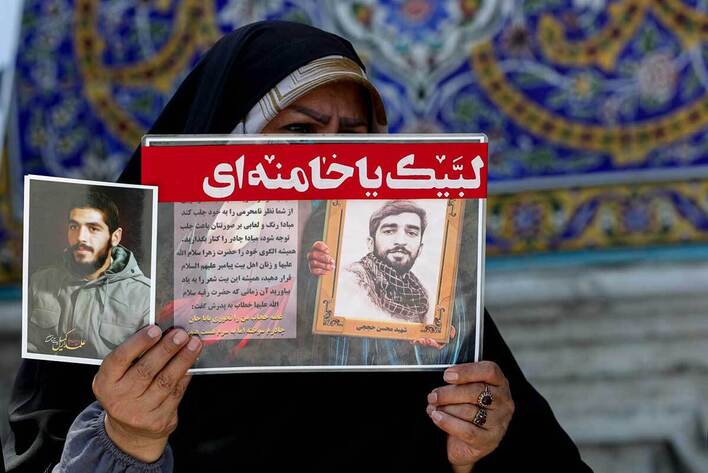 لبیک یا خامنه‌ای
از شما نظر نامحرمی را به خود جلب کند
مبادا رنگ و لعابی بر صورتتان باعث جلب
توجه شود، مبادا چادر را کنار بگذارید.
همیشه الگوی خود را حضرت زهرا سلام الله
علیها و زنان اهل بیت پیامبر علیهم السلام
قرار دهید، همیشه این بیت شعر را به یاد
بیاورید آن زمانی که حضرت رقیه سلام
الله علیها خطاب به پدرش گفت:
غصه حجاب من را نخوری بابا جان
چادرم سوخته اما به سرم هست
شهید محسن حججی